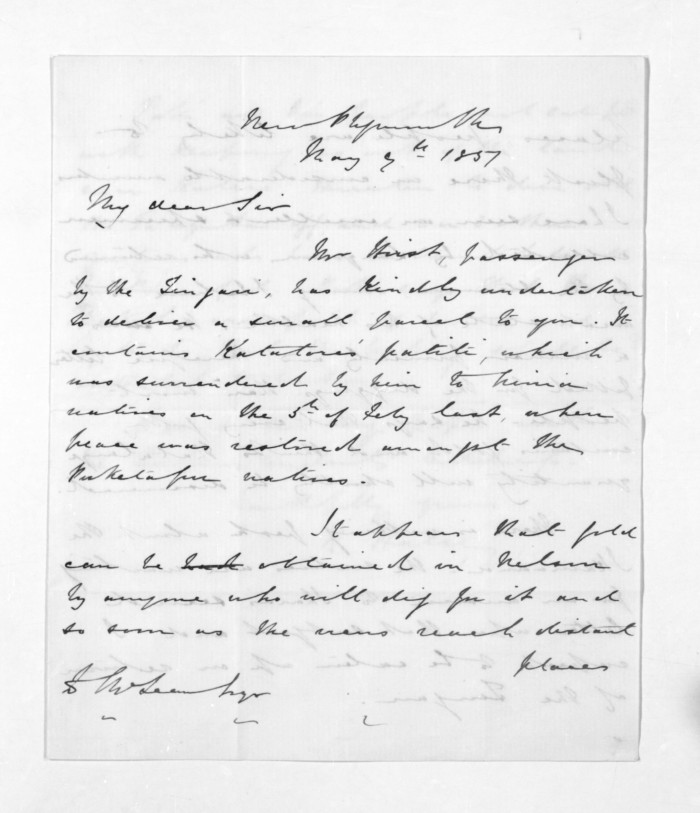 New Plymouth
May 9th 1857
My dear Sir
Mr Hirst, passenger
by the Zingari, has kindly undertaken
to deliver a small parcel to you. It
contains Katatore's patiti, which
was surrendered by him to Ninia
natives on the 5th of Feby last, when
peace was restored amongst the
Puketapu natives.
It appears that gold
can be had obtained in Nelson
by anyone who will dig for it and
so soon as the news reach distant
places
D McLean Esqr